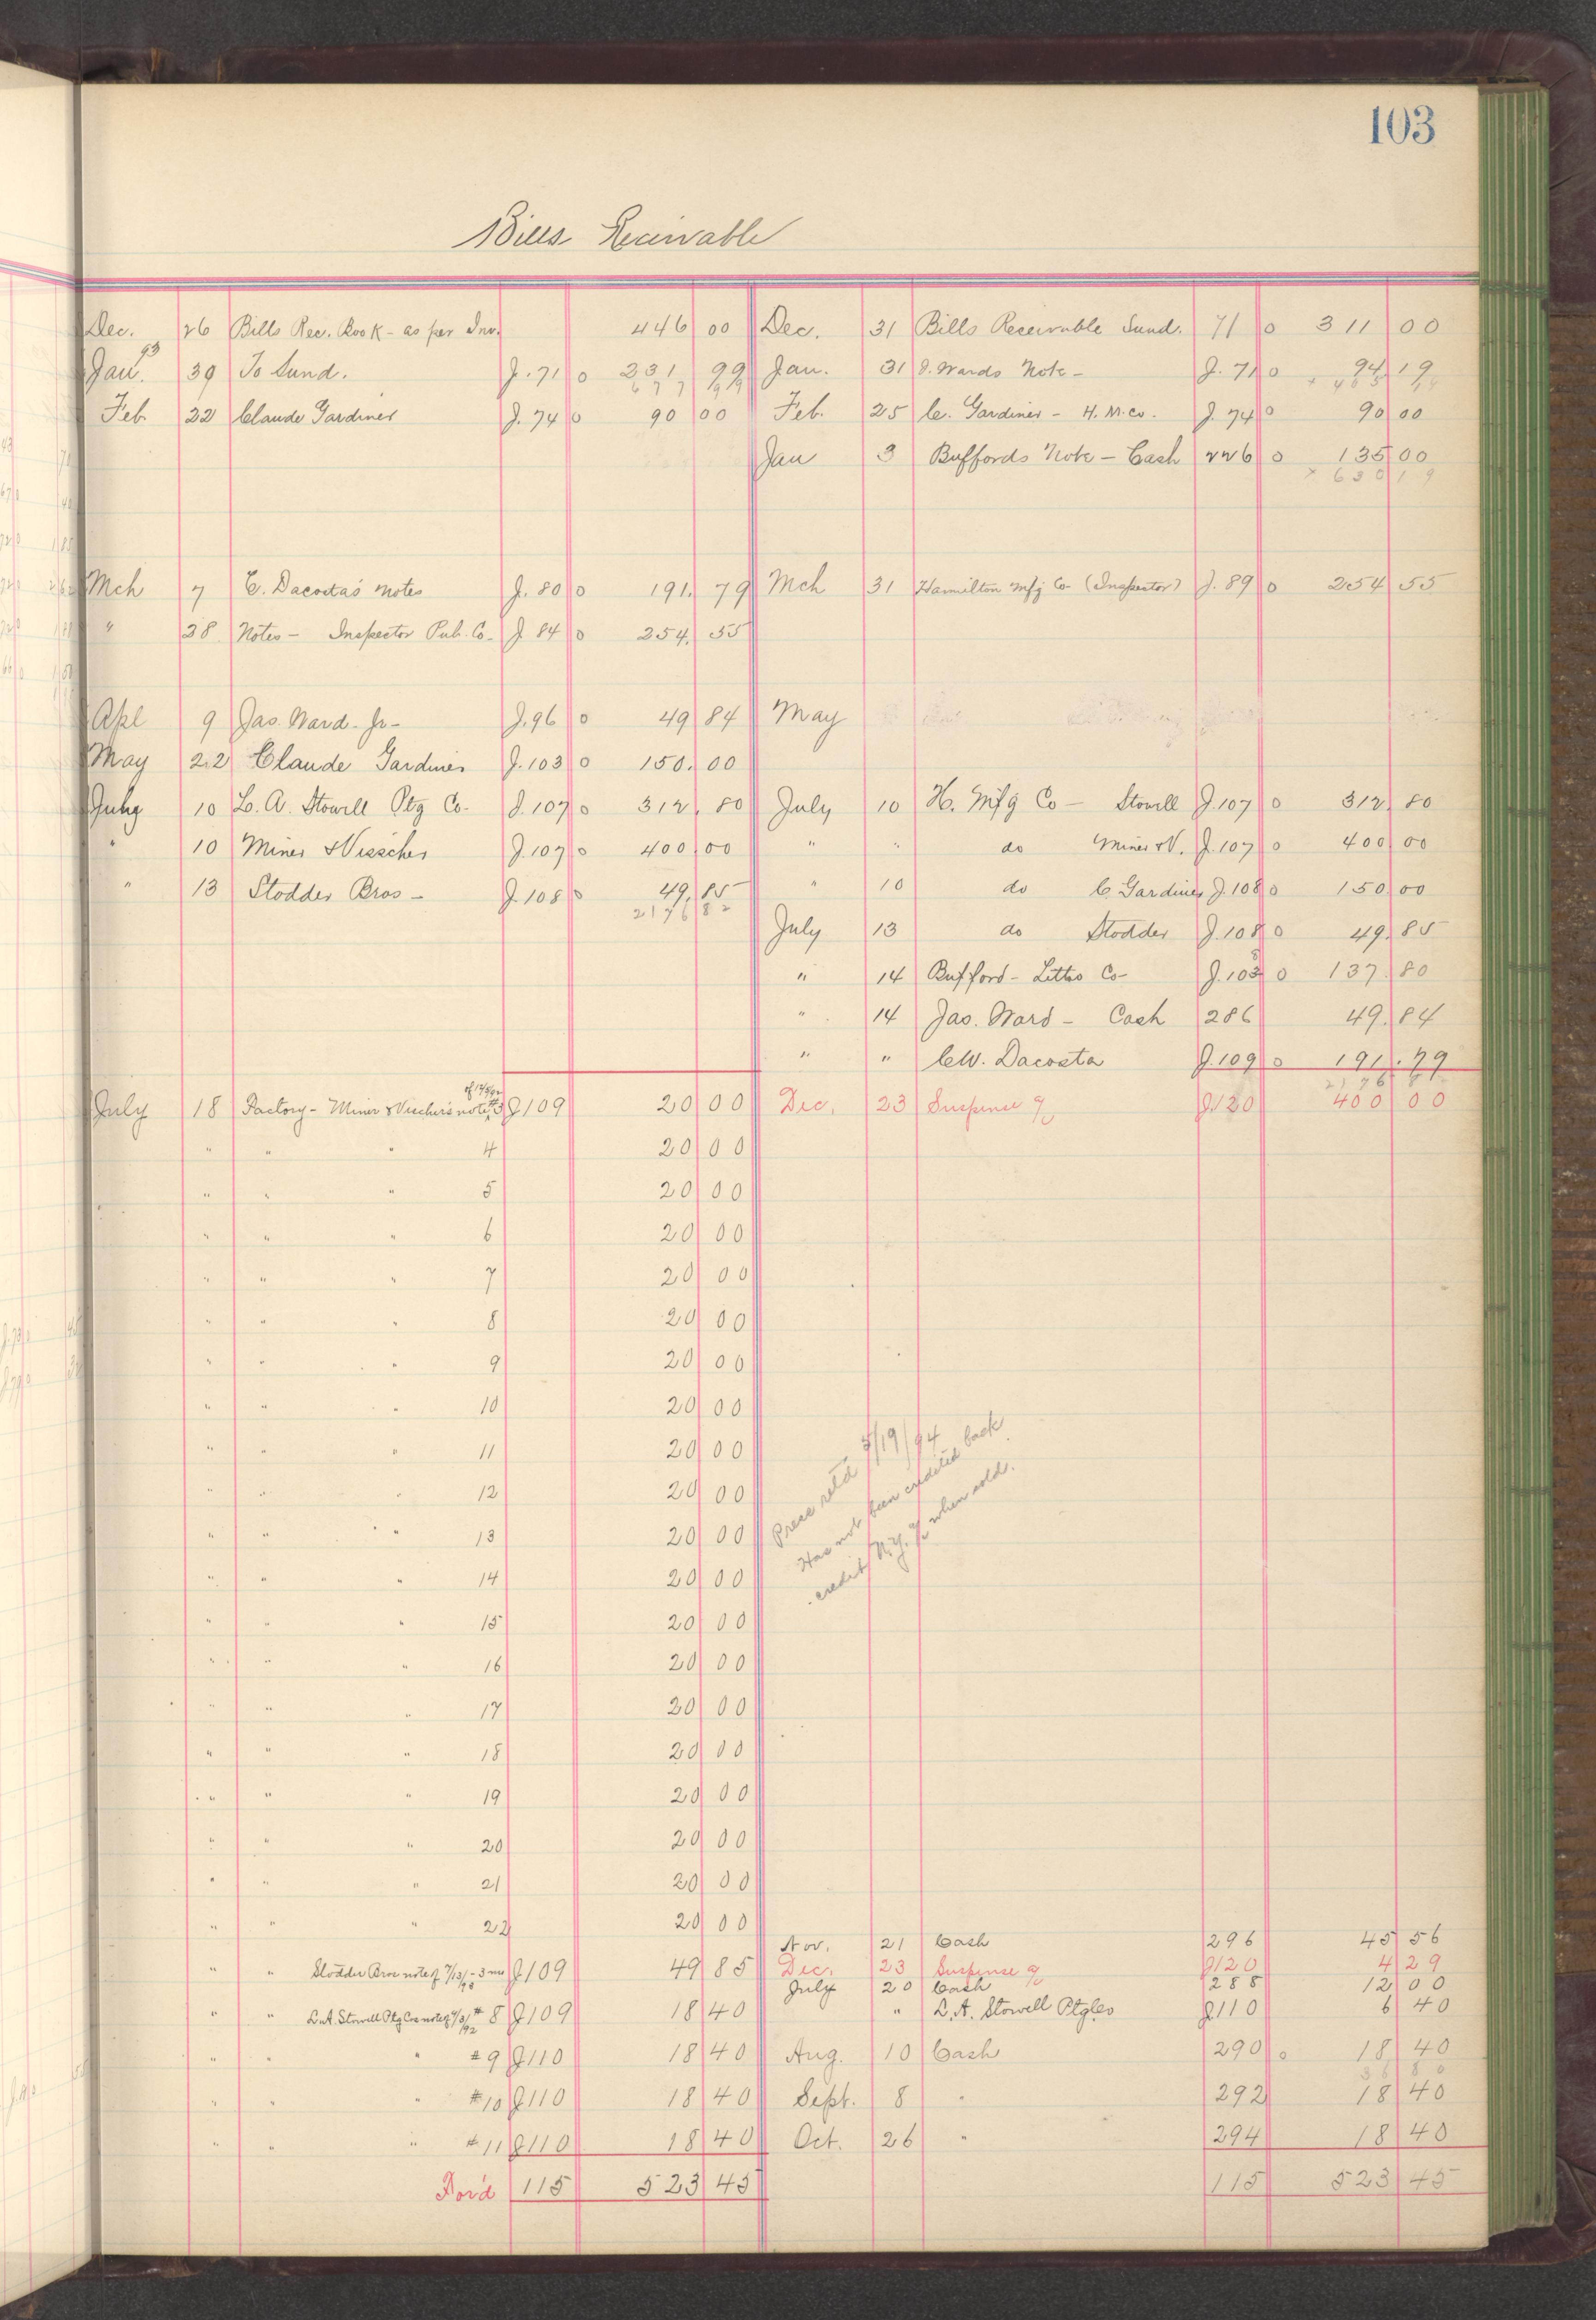 103
Bills Receivable
Dec. 26 Bills Rec. Book - as per Inv. 446 00 Dec. 31 Bills Receivable Sund. 71 0 311 00
Jan. 93 30 To Sund. J. 71 0 231 99 Jan. 31 J. Wards Note - J. 71 0 94 19
677 99
Feb. 22 Claude Gardiner J. 74 0 90 00 Feb. 25 C. Gardiner - H. M. Co. J. 74 0 90 00
Jan 3 Buffords Note - Cash 226 0 135 00
630 19
Mch 7 C. Dacosta's notes J. 80 0 191. 79 Mch 31 Hamilton Mfg Co (Inspector) J. 89 0 254 55
" 28 Notes - Inspector Pub. Co. J 84 0 254. 55
Apl 9 Jas. Ward. Jr - J. 96 0 49 84 May
May 22 Claude Gardiner J. 103 0 150. 00
July 10 L. A. Stowell Ptg Co. J. 107 0 312. 80 July 10 H. Mfg Co - Stowell J. 107 0 312. 80
" 10 Miner & Visscher J. 107 0 400 00 " " do Miner & V. J. 107 0 400 00
" 13 Stodder Bros - J. 108 0 49. 85 " 10 do C. Gardiner J. 108 0 150 00
2176 82
July 13 do Stodder J. 108 0 49. 85
" 14 Bufford - Litho Co - J. 108 0 137. 80
" 14 Jas. Ward - Cash 286 49. 84
" " C.W. Dacosta J. 109 0 191. 79
July 18 Factory - Miner & Vischer's note #3 J 109 20 00 Dec. 23 Suspense a/c J120 400 00
" " " 4 20 00
" " " 5 20 00
" " " 6 20 00
" " " 7 20 00
" " " 8 20 00
" " " 9 20 00
" " " 10 20 00
" " " 11 20 00
" " " 12 20 00
" " " 13 20 00
" " " 14 20 00
" " " 15 20 00
" " " 16 20 00
" " " 17 20 00
" " " 18 20 00
" " " 19 20 00
" " " 20 20 00
" " " 21 20 00
" " " 22 20 00
retd 5/19/94
Has not been credited back
credit N.Y. a/c when sold.
Nov. 21 Cash 296 45 56
" " Stodder Bros note of 7/13/93 - 3 mos J 109 49 85 Dec. 23 Suspense a/c J120 4 29
July 20 Cash 288 12 00
" " L. A. Stowell Ptg Cos note of /92 # 8 J 109 18 40 " L. A. Stowell Ptg Co J110 6 40
" " " # 9 J110 18 40 Aug. 10 Cash 290 0 18 40
36 80
" " " # 10 J110 18 40 Sept. 8 " 292 18 40
" " " # 11 J110 18 40 Oct. 26 " 294 18 40
For'd 115 523 45 115 523 45